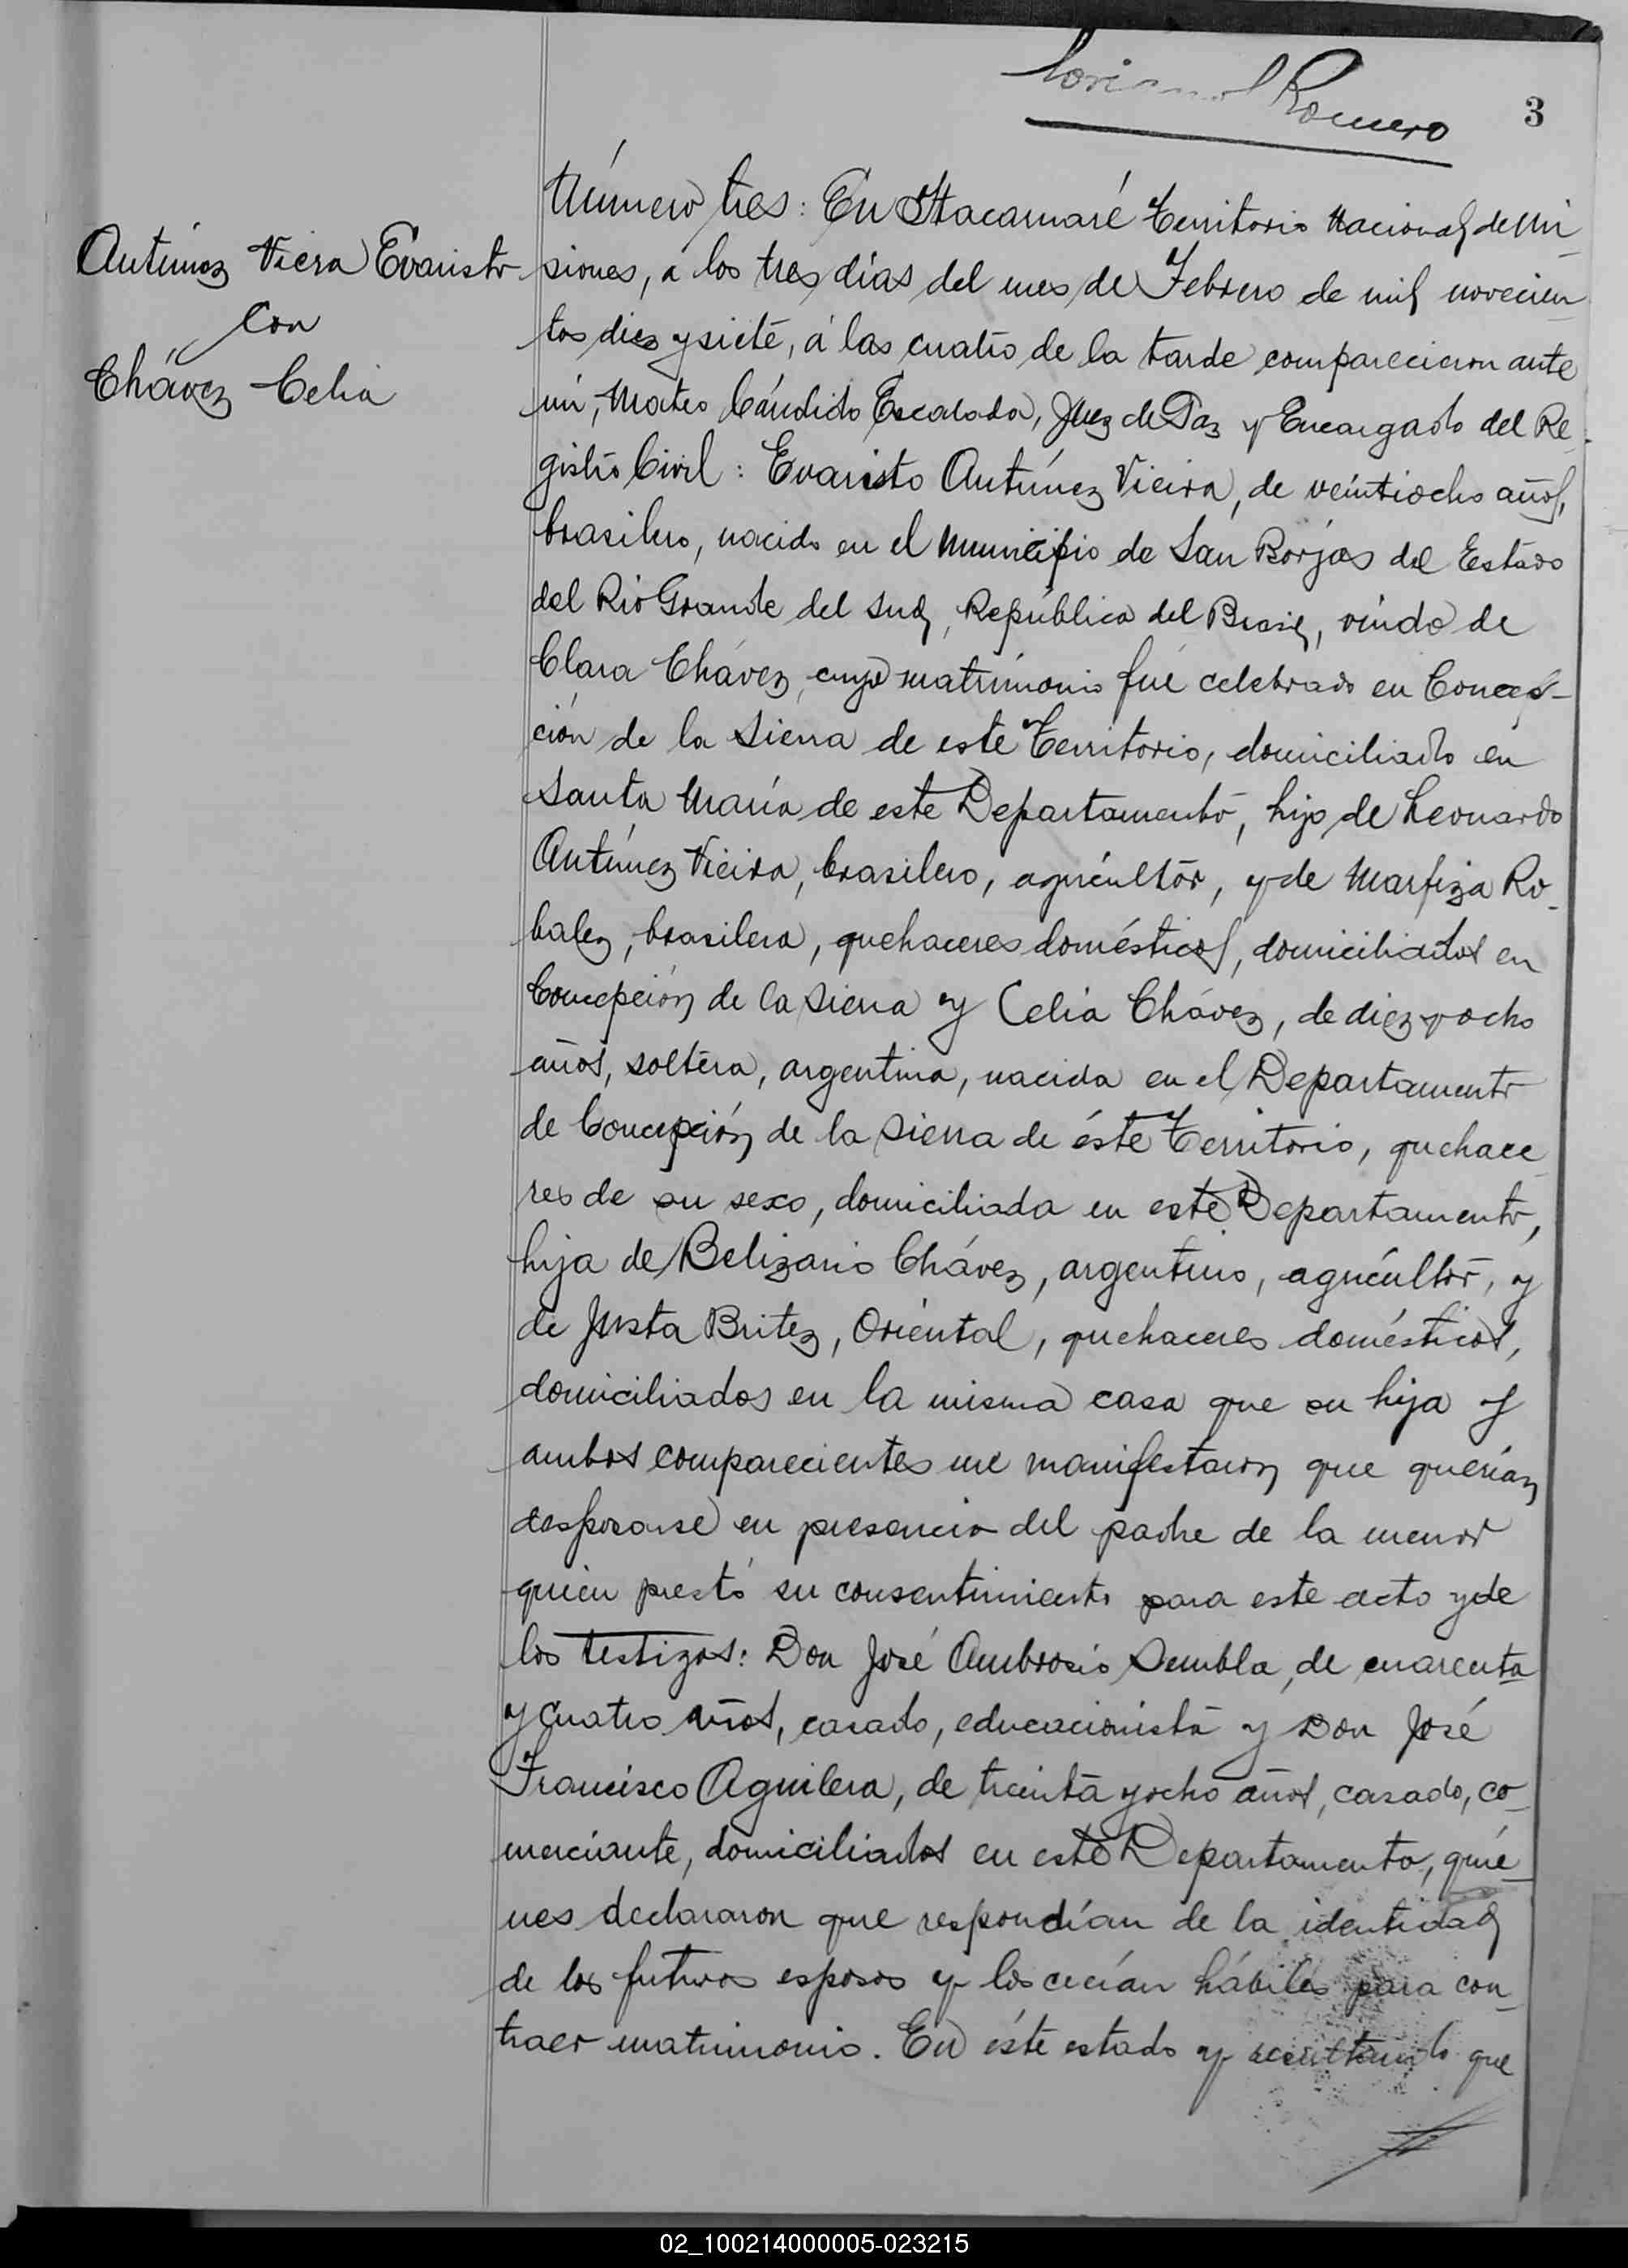 Romero
3
Antúnez Viera Evaristo
con
Chávez Celia
Número tres: En Itacaruaré Territorio Nacional de Mi-
siones, á los tres días del mes de Febrero de mil novecien-
tos diez y siete, á las cuatro de la tarde comparecieron ante
mí, Mateo Cándido Escalada, Juez de Paz y Encargado del Re-
gistro Civil: Evaristo Antúnez Vieira, de veintiocho años,
brasilero, nacido en el Municipio de San Borjas del Estado
del Rio Grande del Sud, República del Brasil, viudo de
Clara Chávez, cuyo matrimonio fué celebrado en Concep-
ción de la Sierra de este Territorio, domiciliado en
Santa María de este Departamento, hijo de Leonardo
Antúnez Vieira, brasilero, agricultor, y de Marfiza Ro-
balez, brasilera, quehaceres domésticos, domiciliados en
Concepción de la Sierra y Celia Chávez, de diez y ocho
años, soltera, argentina, nacida en el Departamento
de Concepción de la Sierra de éste Territorio, quehace-
res de su sexo, domiciliada en este Departamento,
hija de Belizario Chávez, argentino, agricultor, y
de Justa Britez, Oriental, quehaceres domésticos,
domiciliados en la misma casa que su hija y
ambos comparecientes me manifestaron que querían
desposarse en presencia del padre de la menor
quien prestó su consentimiento para este acto y de
los testigos: Don José Ambrosio Sembla, de cuarenta
y cuatro años, casado, educacionista y Don José
Francisco Aguilera, de treinta y ocho años, casado, co-
merciante, domiciliados en este Departamento, quie-
nes declararon que respondían de la identidad
de los futuros esposos y los creían hábiles para con-
traer matrimonio. En éste estado y resultando que
02_100214000005-023215